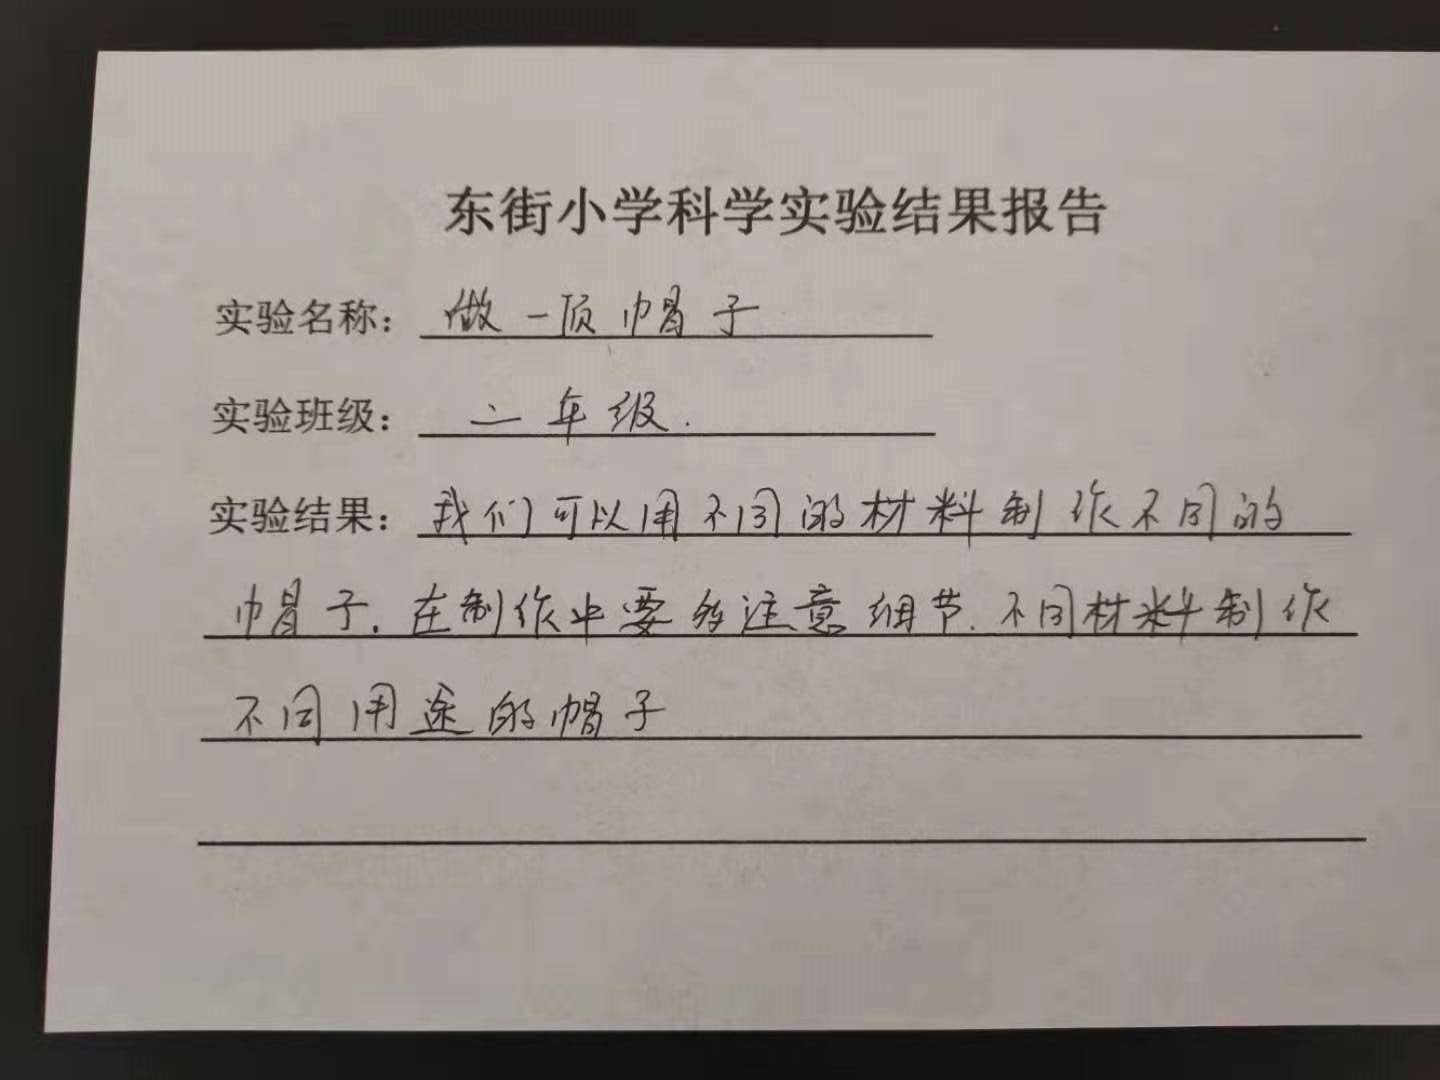 东街小学科学实验结果报告
实验名称：做一顶帽子
实验班级：二年级.
实验结果：我们可以用不同的材料制作不同的
帽子.在制作中要多注意细节.不同材料制作
不同用途的帽子